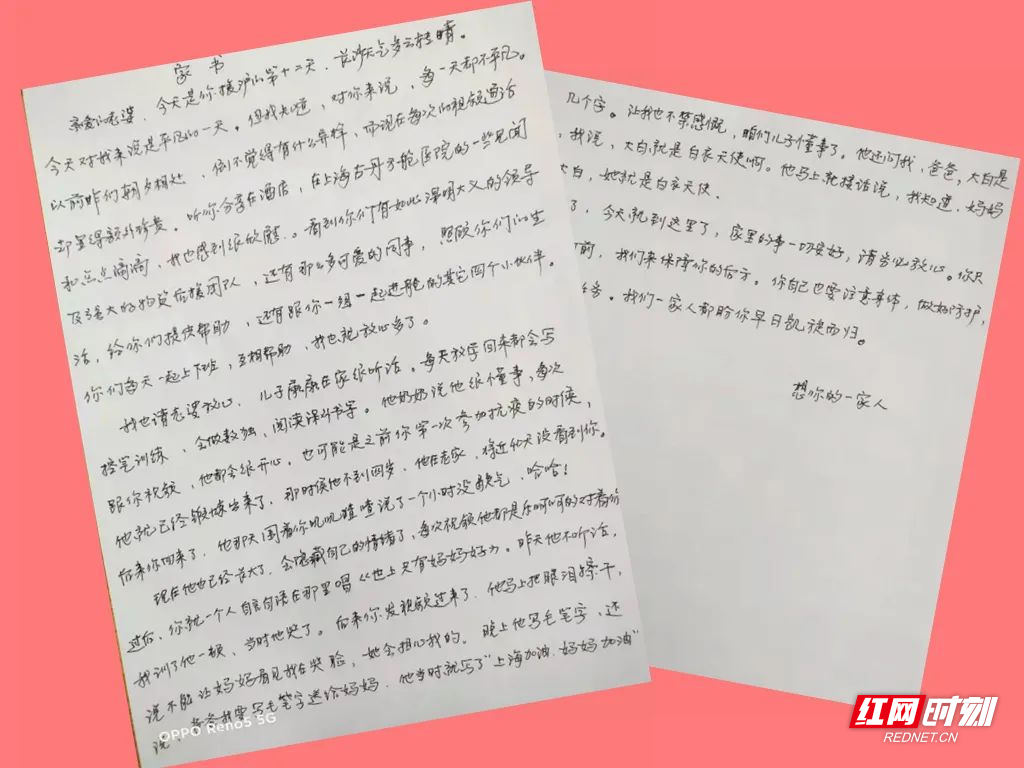 家书
亲爱的老婆，今天是你援沪的第十二天，长沙天气多云转晴。
今天对我来说是平凡的一天。但我知道，对你来说，每一天都不平凡。
以前咱们朝夕相处，倒不觉得有什么异样，而现在每次的视频通话
却显得额外珍贵。听你分享在酒店，在上海方舱医院的一些见闻
和点点滴滴，我也感到很欣慰。看到你们有如此深明大义的领导
及强大的物资后援团队，还有那么多可爱的同事，照顾你们的生
活，给你们提供帮助，还有跟你一组一起进舱的其它四个小伙伴。
你们每天一起上下班，互相帮助，我也就放心多了。
我也请老婆放心，儿子康康在家很听话。每天放学回来都会写
控笔训练，会做数独，阅读课外书等。他奶奶说他很懂事，每次
跟你视频，他都会很开心。也可能是之前你第一次参加抗疫的时候，
他就已经锻炼出来了，那时候他不到四岁，他在老家，将近40天没看到你。
后来你回来了，他那天围着你叽叽喳喳说了一个小时没歇气，哈哈！
现在他也已经长大了，会隐藏自己的情绪了，每次视频他都是乐呵呵的对着你
过后，你就一个人自言自语在那里唱《世上只有妈妈好》。昨天他不听话，
我训了他一顿，当时他哭了。后来你发视频过来了，他马上把眼泪擦干，
说不能让妈妈看见我在哭脸，她会担心我的。晚上他写毛笔字，还
说，爸爸我要写毛笔字送给妈妈，他当时就写了"上海加油，妈妈加油"
OPPO Reno5 5G
几个字。让我也不禁感慨，咱们儿子懂事了。他还问我，爸爸，大白是
，我说，大白就是白衣天使啊。他马上就接话说，我知道，妈妈
大白，她就是白衣天使。
了，今天就到这里了，家里的事一切安好，请务必放心。你只
前，我们来保障你的后方。你自己也要注意身体，做好防护，
任务。我们一家人都盼你早日凯旋而归。
想你的一家人
红网时刻
REDNET.CN